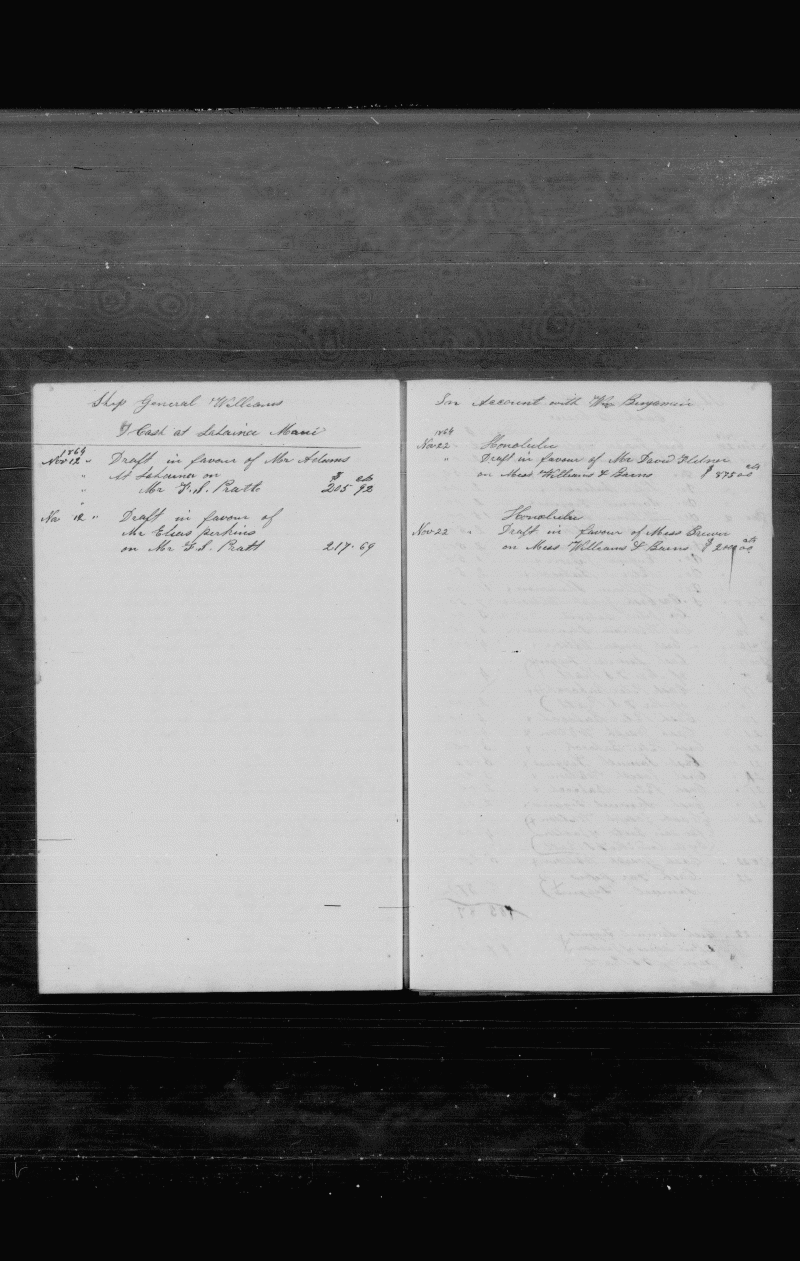 Ship General Williams
Cash at Lahaina Maui
1864
Nov 12 " Draft in favour of Mr Adams
" At Lahaina on $ cts
" Mr F. S. Pratt 205 92
No 12 " Draft in favour of
Mr Elias perkins
on Mr F. S. Pratt 217.69
In Account with Wm Benjamin
1864
Nov 22 Honolulu
" Draft in favour of Mr David
on Mess Williams & $ 875 00 cts
Honolulu
Nov 22 " Draft in favour of Mess Brewer
on Mess Williams & $ 00 cts